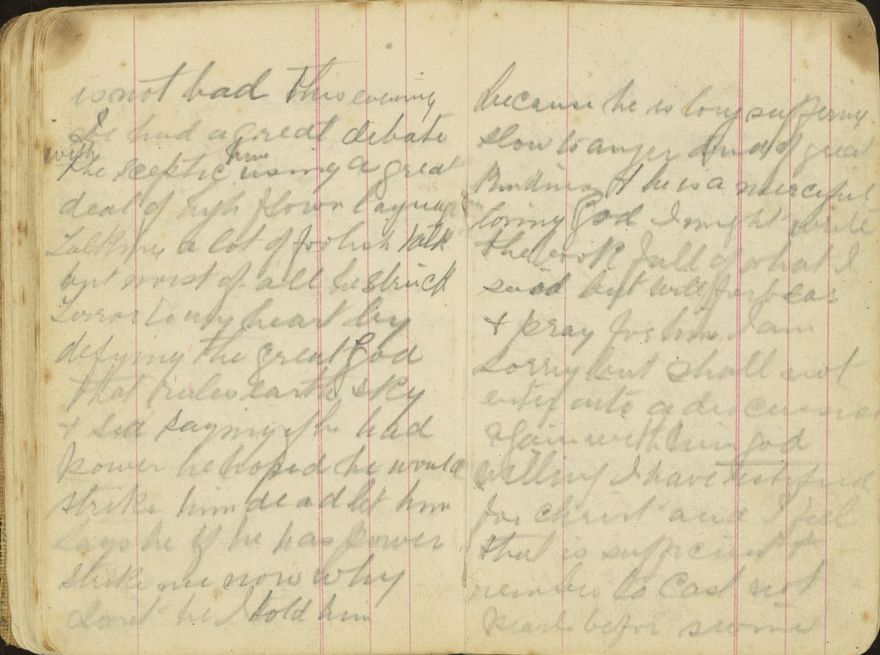 is not bad This evening
I've had a great debate
with
the sceptic him using a great
deal of high flown language
Talking a lot of foolish talk
but worst of all he struck
Terror to my heart by
defying the great God
that rules earth sky
& sea saying if he had
power he hoped he would
strike him dead let him
says he if he has power
strike me now why
dont he I told him
because he is long suffering
slow to anger and of great
kindness & he is a merciful
loving God I might write
the book full of what I
said but will forbear
& pray for him I am
sorry but shall not
enter into a discussion
again with him god
willing I have testified
for christ and I feel
that is sufficient &
remember to cast not
pearls befor swine